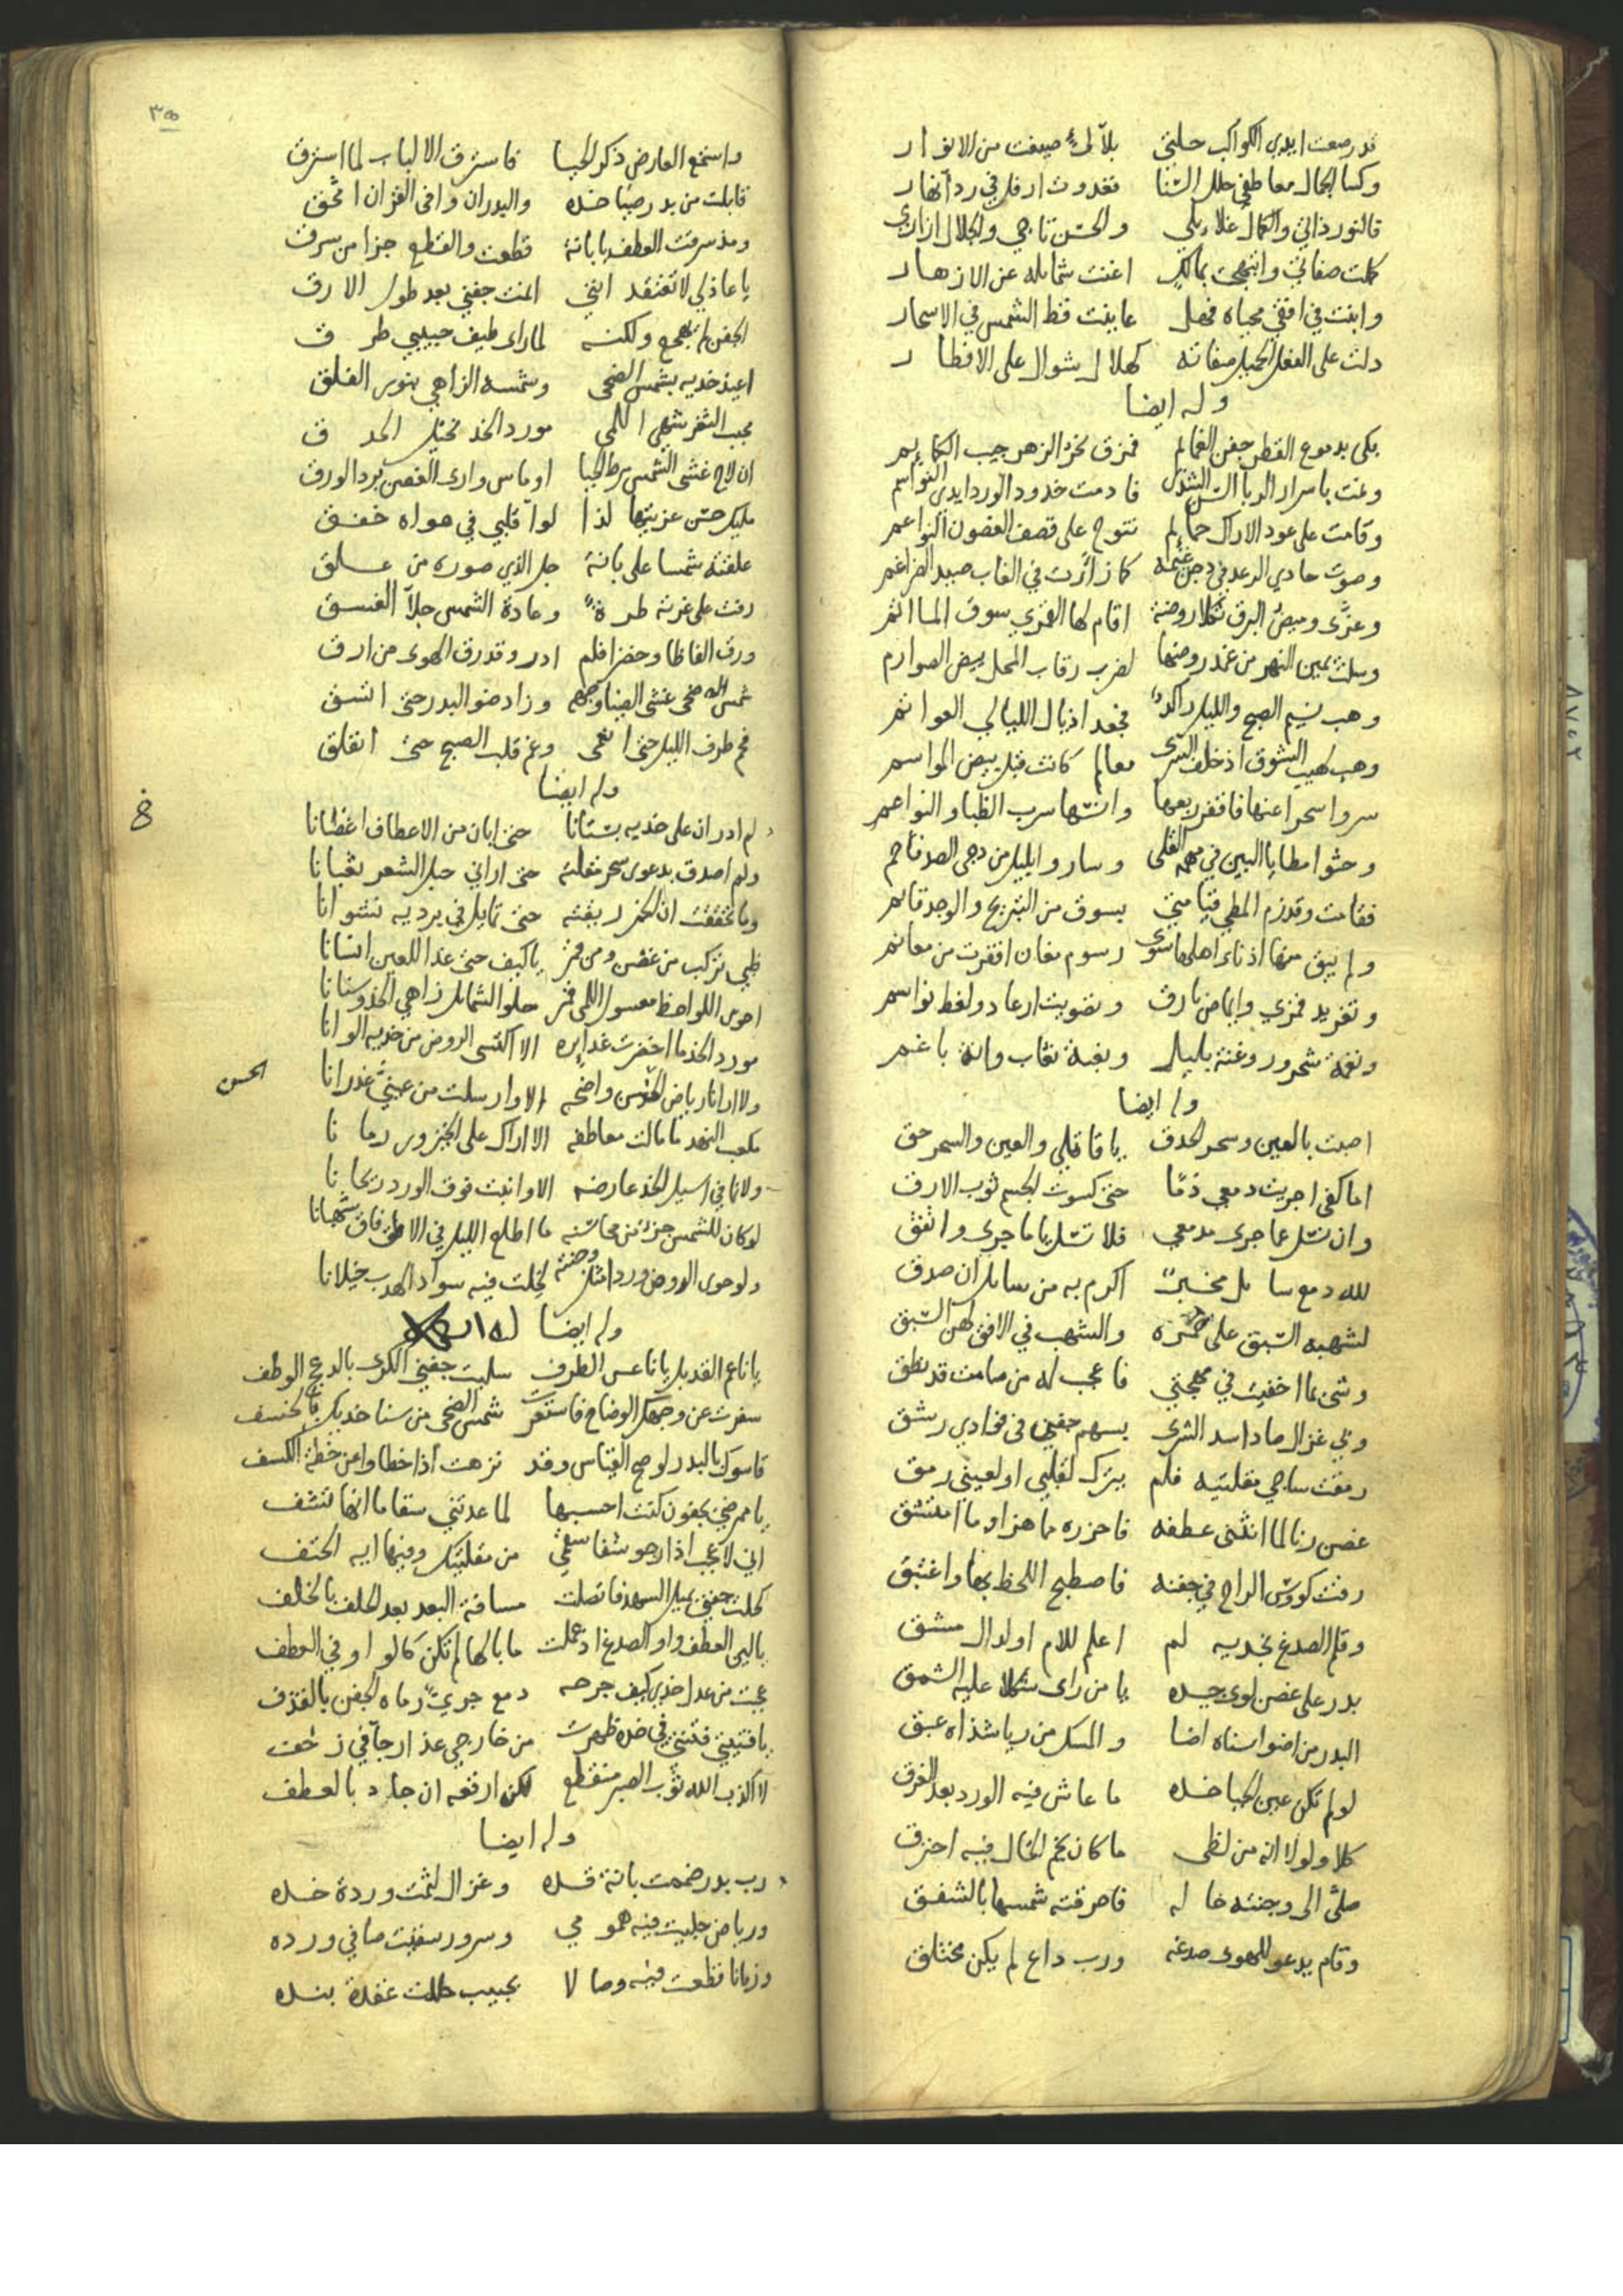 قد رصعت ايدي الكواكب حليتي بلآلئ صيغت من الانوار
وكسا الجمال معاطفي حلل الثنا فغدوت ارفل في ردا
فالنور ذاتي والكمال غلايلي والحسن تاجي والجلال ازاري
كملت صفاتي وابتهجت اغنت شمايله عن الازهار
وابنت في افقي محياه فهل عاينت قط الشمس في الاسحار
دلت على الفعل الجميل صفاته كهلال شوال على الاقطار
وله ايضا
بكى بدموع القطر جفن الغمايم فمزق نحر الزهر جيب الكمايم
ونمت باسرار الربا فادمت خدود الورد ايدي النواسم
وقامت على عود الاراك حمايم تنوح على قصف الغصون النواعم
وصوت حادي الرعد في دجن كما زارت في الغاب صيد الضراغم
وعزى وميض البرق ثكلا روضة اقام لها القمري سوق الماتم
وسلت يمين النهر من غمد روضها لضرب رقاب المحل بيض الصوارم
وهب نسيم الصبح والليل راكد فجعد اذيال الليالي العواتم
وهب لهيب الشوق اذ خلف السرى معالم كانت قبل بيض المواسم
سروا سحرا عنها فاقفر ربعها وانسها سرب الظبا والنواعم
وحثوا مطايا البين في مهمه الفلى وساروا بليل من دجى الصد فاحم
فقامت وقد زم المطي قيامتي بسوق من التبريح والوجد قايم
ولم يبق منها اذ ناء اهلها سوى رسوم مغان اقفرت من معالم
وتغريد قمري وايماض بارق وتصويت ارعاد ولغط نواسم
ونغمة شحرور وغنة بلبل ونعبة نعاب وانة باغم
وله ايضا
اصبت بالعين وسحر الحدق يا قاتلي والعين والسحر حق
اما كفى اجريت دمعي دما حتى كسوت الجسم ثوب الارق
وان تسل عما جرى مدمعي فلا تسل يا ما جرى واتفق
لله دمع سايل مخبرا اكرم به من سايل ان صدق
لشهبه السبق على حمره والشهب في الافق لهن السبق
وشى بما اخفيت في مهجتي فاعجب له من صامت قد نطق
وبي غزال صاد اسد الشرى بسهم جفن في فؤادي رشق
رمقت ساجي مقلتيه فلم يترك لقلبي او لعيني رمق
غصن رنا لما انثنى عطفه فاحزره ما هز او ما امتشق
رقت كووس الراح في جفنه فاصطبح اللحظ بها واغتبق
وقلم الصدغ بخديه لم اعلم للام او لدال مشق
بدر على غصن لوى جيده يا من راى شكلا عليه اتسق
البدر من اضوا سناه اضا والمسك من ريا شذاه عبق
لو لم تكن عين الحيا خده ما عاش فيه الورد بعد الغرق
كلا ولولا انه من لظى ما كان نجم الخال فيه احترق
صلى الى وجنته خاله فاحرقته شمسها بالشفق
وقام يدعو للهوى صدغه ورب داع لم يكن مختلق
٣٥
واستمع العارض ذكر الحيا فاسترق الالباب لما استرق
قابلت من بدر صبا خده والبدر ان وافى القران امحق
ومذ سرقت العطف يا بانة قطعت والقطع جزا من سرق
يا عاذلي لا تعتقد انني المت جفني بعد طول الارق
الجفن لم يهجع ولكنه لما راى طيف حبيبي طرق
اعيذ خديه بشمس الضحى وشمسه الزاهي بنور الفلق
محجب الثغر شهي اللمى مورد الخد كحيل الحدق
ان لاح غشى الشمس مرط الحيا او ماس وارى الغصن برد الورق
مليك حسن عزيتها لذا لوا قلبي في هواه خفق
علقته شمسا على بانة جل الذي صوره من علق
رقت على غرته طرة وعادة الشمس جلا الغسق
ورق الفاظا وخصرا فلم ادر وقد رق الهوى من ارق
شمس ضحى غشى الضيا وجهه وزاد ضو البدر حتى اتسق
فم طرف الليل حتى انمحى وغم قلب الصبح حتى انفلق
وله ايضا
لم ادر ان على خديه بستانا حتى ابان من الاعطاف اغصانا
ولم اصدق بدعوى سحر مقلته حتى اراني حبل الشعر ثعبانا
وما تحققت ان الخمر ريقته حتى تمايل في برديه نشوانا
ظبي تركب من غصن ومن قمر يا كيف حتى غدا للعين انسانا
احوى اللواحظ معسول اللمى ثمل حلو الشمايل زاهي الخد وسنانا
مورد الخد ما اخضرت غدايره الا اكتسى الروض من خديه الوانا
ولا ارانا رياض الحسن واضحة الا وارسلت من عيني غدرانا
الحسن
مكعب النهد ما مالت معاطفه الا اراك على الخيزور رمانا
ولا نما في اسيل الخد عارضه الا وانبت فوق الورد ريحانا
لو كان للشمس جزؤ من محاسنه ما اطلع الليل في الافاق شهبانا
ولو حوى الروض وردا مثل وجنته لخلت فيه سواد الهدب خيلانا
وله ايضا
يا ناعم القد بل يا ناعس الطرف سلبت جفني الكرى بالدعج الوطف
سفرت عن وجهك الوضاح فاستترت شمس الضحى من سنا خديك بالخسف
قاسوك بالبدر لو صح القياس وقد نزهت اذا خطاوا عن خطة الكسف
يا ممرضي بجفون كنت احسبها لما عدتني سقاما انها تشف
اني لاعجب اذ ارجو شفا سقمي من مقلتيك وفيها اية الحتف
كحلت جفني بميل السهد فاتصلت مسافة البعد بعد الخلف بالخلف
يا لين العطف واو الصدغ اذ عملت ما بالها لم تكن كالواو في العطف
عجبت من عدل خدي كيف جرحه دمع جرى رماه الجفن بالقذف
يا فتيتي فتنتي في خده ظهرت من خارجي عذار جا في زحف
لا اكذب الله ثوب الصبر منقطع لكن ارقعه ان جاد بالعطف
وله ايضا
رب بدر ضممت بانة قده وغزال لثمت وردة خده
ورياض جليت فيه همومي وسرور سقيت صافي ورده
وزمانا قطعت فيه وصالا بحبيب حللت عقدة بنده